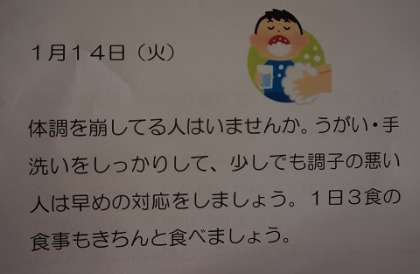 1月14日（火）
体調を崩してる人はいませんか。うがい・手
洗いをしっかりして、少しでも調子の悪い
人は早めの対応をしましょう。1日3食の
食事もきちんと食べましょう。